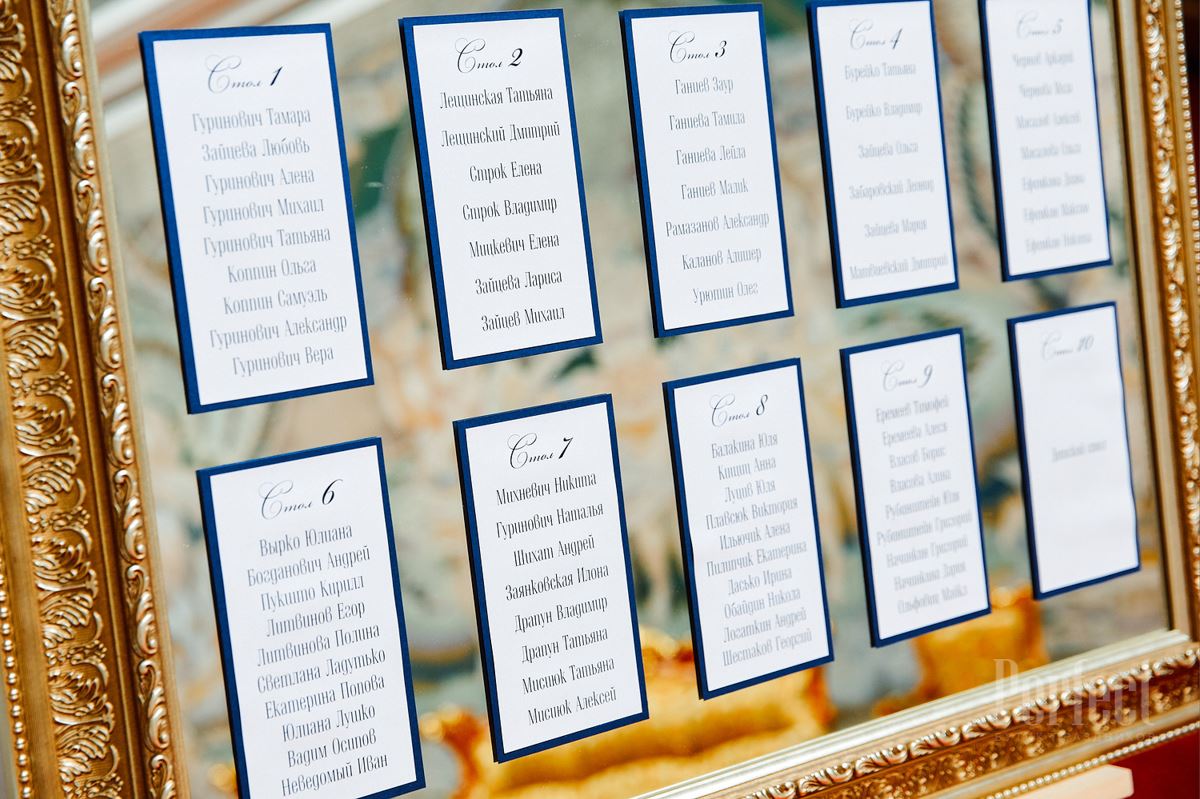 Стол 1
Гуринович Тамара
Зайцева Любовь
Гуринович Алена
Гуринович Михаил
Гуринович Татьяна
Коппин Ольга
Коппин Самуэль
Гуринович Александр
Гуринович Вера
Стол 2
Лещинская Татьяна
Лещинский Дмитрий
Строк Елена
Строк Владимир
Мицкевич Елена
Зайцева Лариса
Зайцев Михаил
Стол 3
Ганиев Заур
Ганиева Тамила
Ганиева Лейла
Ганиев Малик
Рамазанов Александр
Каланов Алишер
Урютин Олег
Стол 4
Бурейко Татьяна
Бурейко Владимир
Зайцева Ольга
Забаровский Леонид
Зайцева Мария
Матвиевский Дмитрий
Стол 5
Чернов Аркадий
Чернова
Масалов Алексей
Масалова Ольга
Ефремкина Диана
Ефремкин Максим
Ефремкин Никита
Стол 6
Вырко Юлиана
Богданович Андрей
Пукито Кирилл
Литвинов Егор
Литвинова Полина
Светлана Ладутько
Екатерина Попова
Юлиана Лушко
Вадим Осипов
Неведомый Иван
Стол 7
Михневич Никита
Гуринович Наталья
Шихат Андрей
Заянковская Илона
Драпун Владимир
Драпун Татьяна
Мисиюк Татьяна
Мисиюк Алексей
Стол 8
Балакина Юля
Кишиц Анна
Луцив Юля
Плавсюк Виктория
Ильючик Алена
Пилипчик Екатерина
Дасько Ирина
Обайдин Никола
Логаткин Андрей
Шестаков Георгий
Стол 9
Еремеев Тимофей
Еремеева Алеся
Власов Борис
Власова Алина
Рубинштейн Юля
Рубинштейн Григорий
Начинкин Григорий
Начинкина Дария
Ольфович Майкл
Стол 10
Детский стол
Perfect